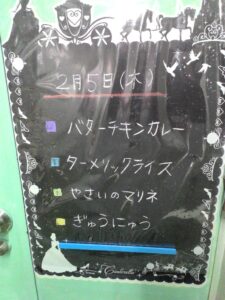 2月5日(木)
バターチキンカレー
ターメリックライス
やさいのマリネ
ぎゅうにゅう
Cinderella